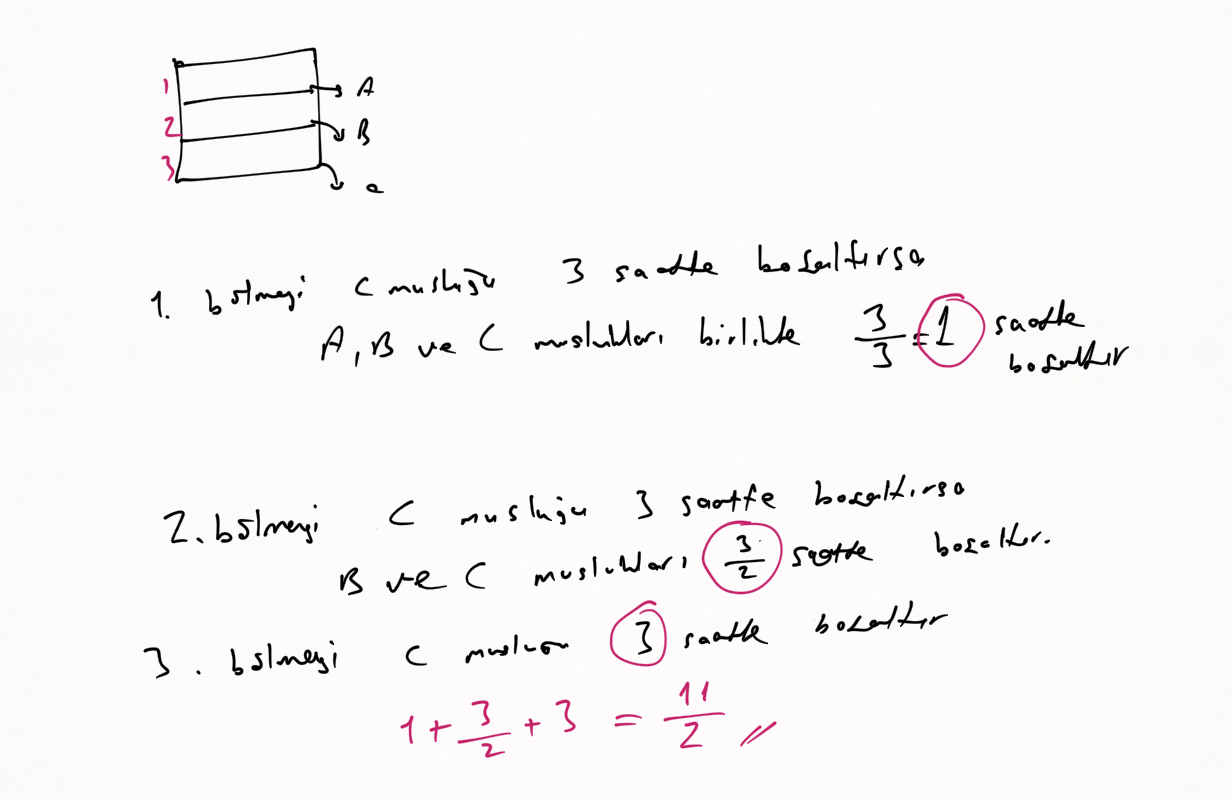 1 A
2 B
3 c
1. bölmeyi C musluğu 3 saatte boşaltırsa
A, B ve C muslukları birlikte 3/3 = 1 saatte
boşaltır
2. bölmeyi C musluğu 3 saatte boşaltırsa
B ve C muslukları 3/2 saatte boşaltır.
3. bölmeyi C musluğu 3 saatte boşaltır
1 + 3/2 + 3 = 11/2 //